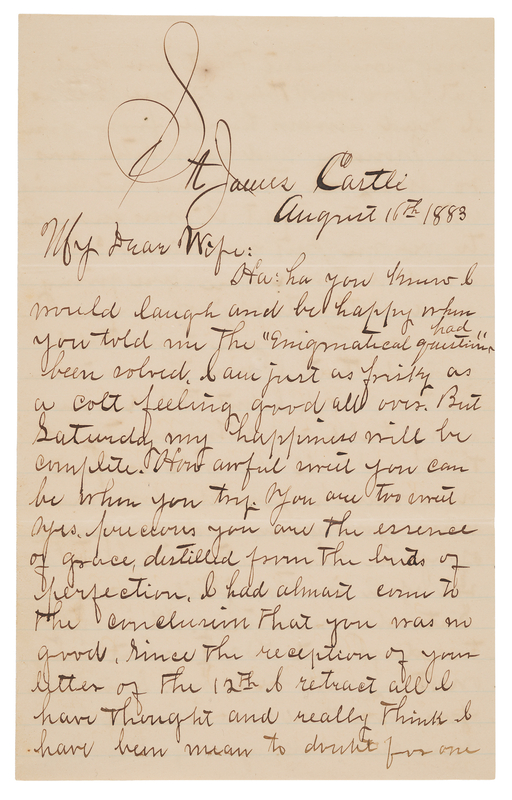 St James Castle
August 16th 1883
My Dear Wife:
Ha: ha you knew I
would laugh and be happy when
you told me the "Enigmatical question"
had
been solved. I am just as frisky as
a colt feeling good all over. But
Saturday my happiness will be
complete. How awful sweet you can
be when you try. You are too sweet
Yes. precious you are the essence
of grace, distilled from the buds of
perfection. I had almost come to
the conclusion that you was no
good. Since the reception of your
letter of the 12th I retract all I
have thought and really think I
have been mean to doubt for one